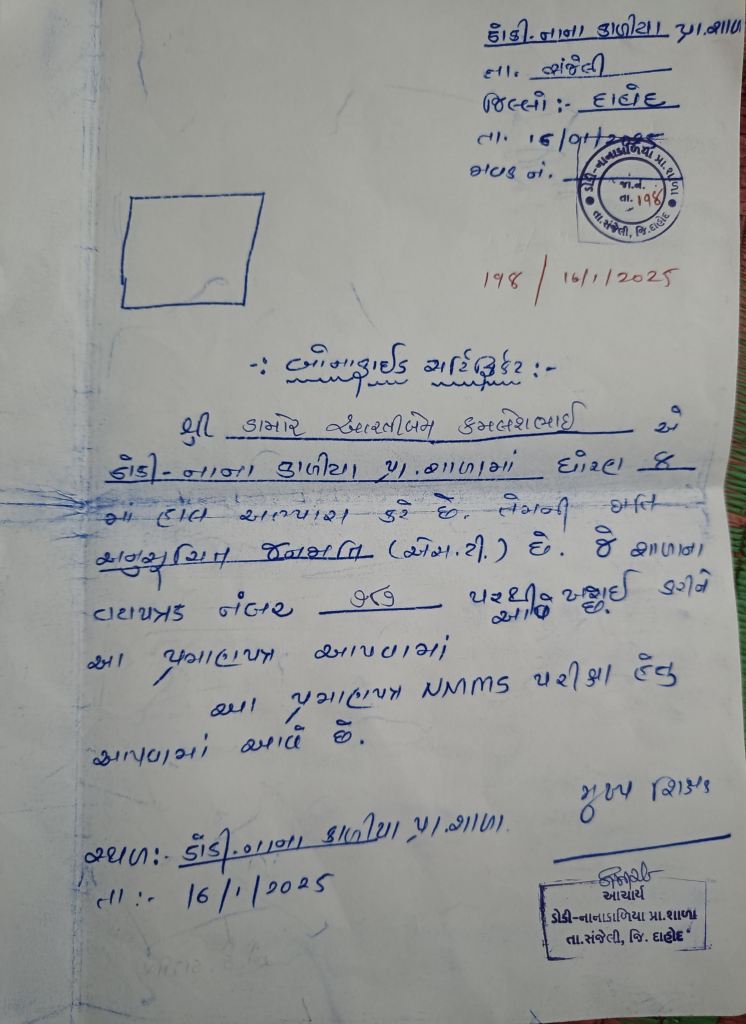 ડોકી-નાના કાળીયા પ્રા.શાળા
તા. સંજેલી
જિલ્લો:- દાહોદ
તા. 16/01/2025
જાવક નં.
ડોકી-નાનાકાળિયા પ્રા.શાળા
જા.નં.
તા. ૧૧૪
તા.સંજેલી, જિ.દાહોદ
૧૧૪ / 16/1/2025
-: બોનાફાઈડ સર્ટિફિકેટ :-
શ્રી ડામોર આરતીબેન કમલેશભાઈ એ
ડોકી-નાના કાળીયા પ્રા.શાળામાં ધોરણ ૪
માં હાલ અભ્યાસ કરે છે. તેમની જાતિ
અનુસુચિત જનજાતિ (એસ.ટી.) છે. જે શાળાના
વયપત્રક નંબર ૭૪૭ પરથી ખરાઈ કરીને
આ પ્રમાણપત્ર આપવામાં આવે છે.
આ પ્રમાણપત્ર NMMS પરીક્ષા હેતુ
આપવામાં આવે છે.
મુખ્ય શિક્ષક
સ્થળ:- ડોકી-નાના કાળીયા પ્રા.શાળા
તા:- 16/1/2025
આચાર્ય
ડોકી-નાનાકાળિયા પ્રા.શાળા
તા.સંજેલી, જિ. દાહોદ